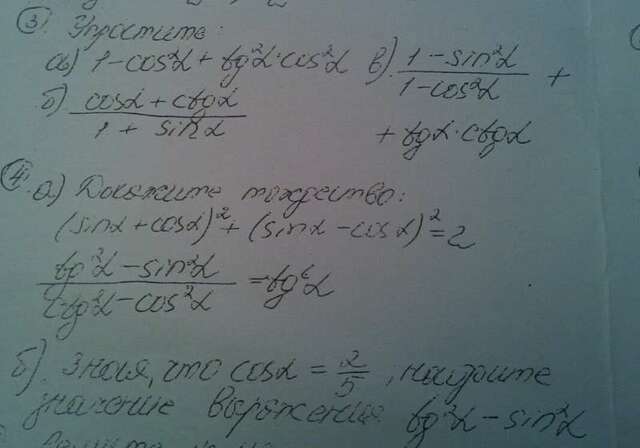 ③ Упростите:
а) 1-cos²α + tg²α·cos²α
б) (cosα + ctgα)/(1 + sinα)
в) (1-sin²α)/(1-cos²α) +
+ tgα·ctgα
④ а.) Докажите тождество:
(sinα + cosα)² + (sinα - cosα)² = 2
(tg²α - sin²α)/(ctg²α - cos²α) = tg⁶α
б). Зная, что cosα = 2/5, найдите
значение выражения tg²α - sin²α